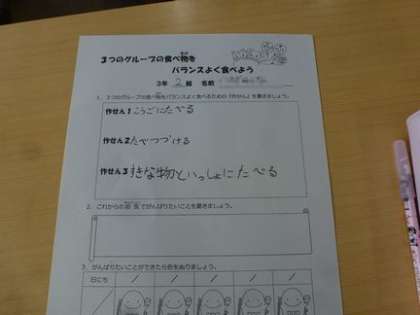 3つのグループの食べ物を
バランスよく食べよう
3年 2 組 名前
1. 3つのグループの食べ物をバランスよく食べるための「作せん」を書きましょう。
作せん1 こうごにたべる
作せん2 たやつづける
作せん3 すきな物といっしょにたべる
2. これからの給食でがんばりたいことを書きましょう。
3. がんばりたいことができたら色をぬりましょう。
日にち / / / / /